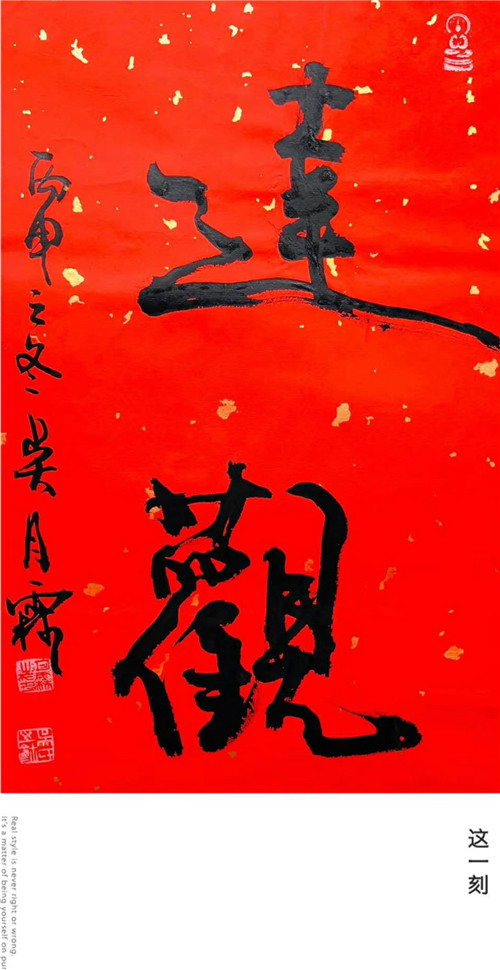 達觀
丙申之冬吴月霖
这一刻
Real style is never right or wrong
It's a matter of being yourself on pur